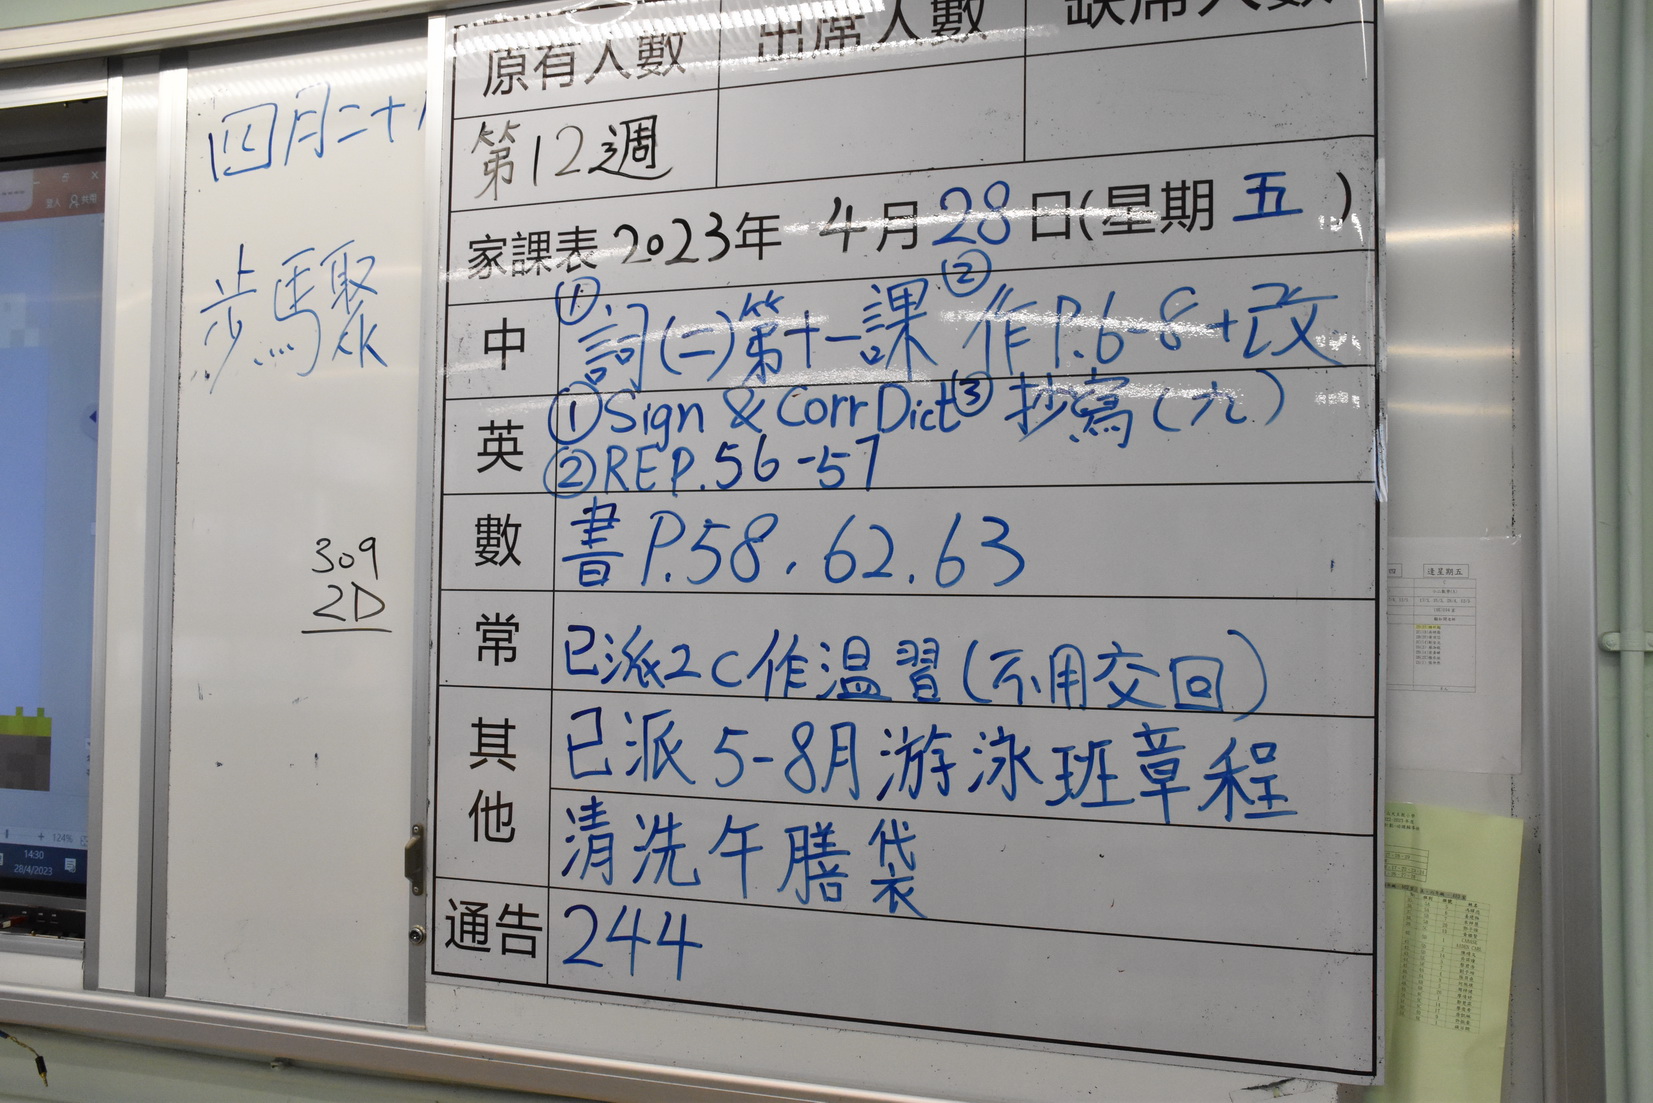 原有人數 出席人數 缺席人數
第12週
家課表 2023年 4月28日(星期五)
中 ①詞(二)第十一課 ②作P.6-8+改
③抄寫(九)
英 ①Sign & Corr Dict
②REP.56-57
數 書P.58.62.63
常 已派2C作溫習(不用交回)
其他 已派5-8月游泳班章程
清洗午膳袋
通告 244
四月二十
步驟
309
2D
登入
共用
124%
14:30
28/4/2023
逢星期五